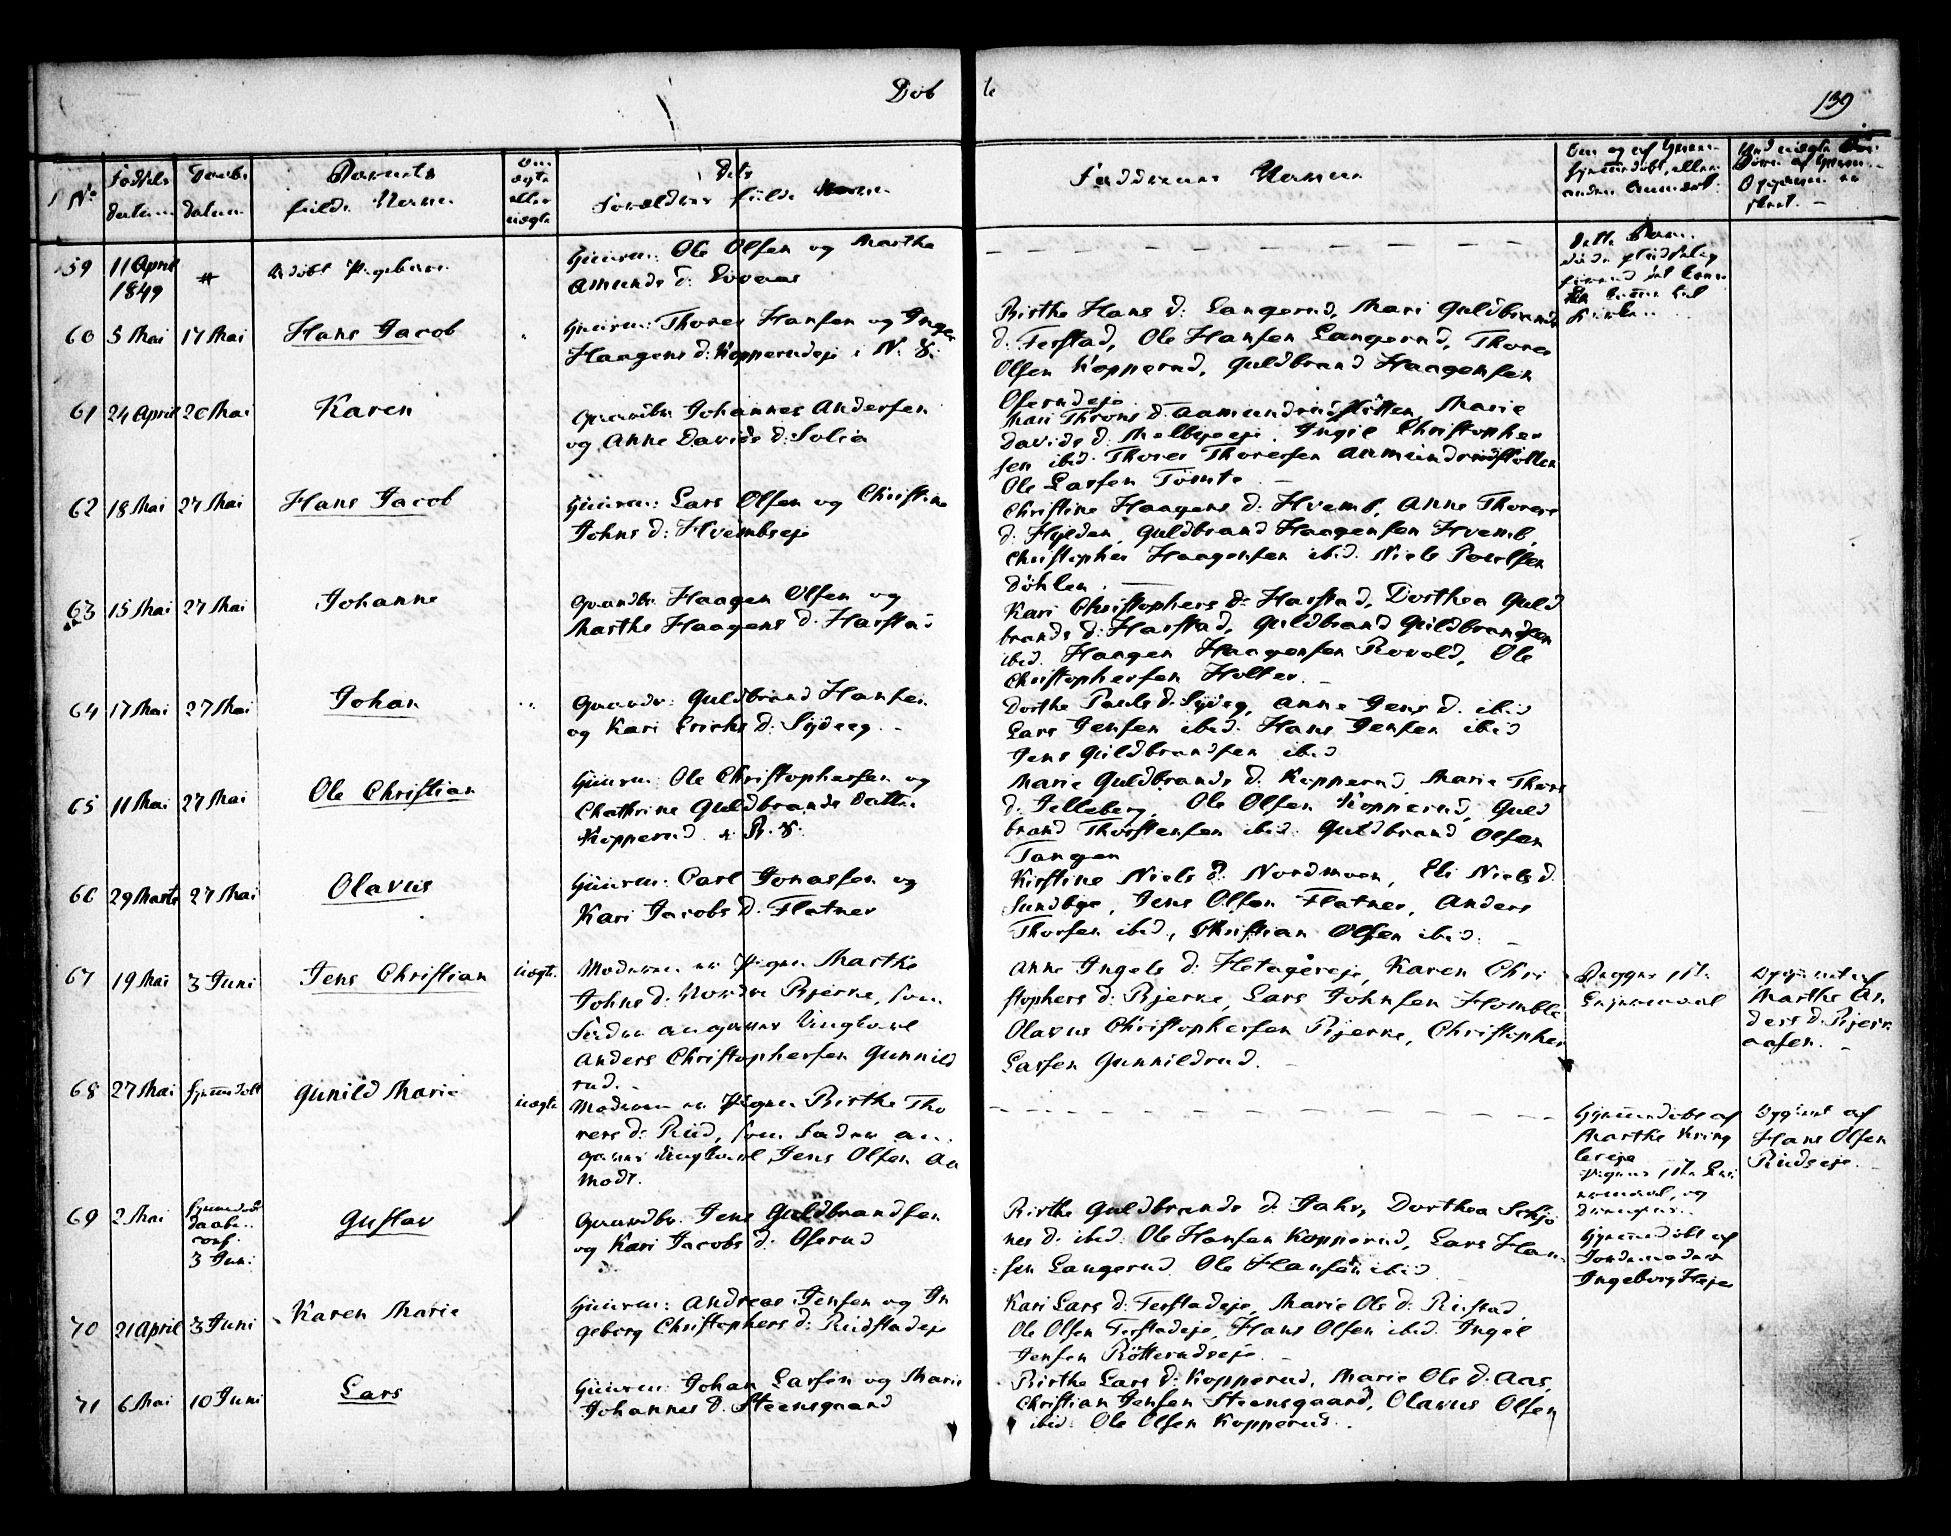 Døb
te
139
No
Fødsels
datum
Daabs
datum
Barnets
fulde Navn
Om
ægte
eller
uægte
Dets
Forældres fulde Navne
Faddernes Navne
Om og af hvem
hjemmedøbt, eller
anden Anmærk.
59
11 April
1849
udøbt Pigebarn
Huusm: Ole Olsen og Marthe
Amunds d:
Dette Barn
døde
60
5 Mai
17 Mai
Hans Jacob
Huusm: Thores Hansen og Inger
Haagens d: Kopperudeje i N. S:
Birthe Hans d: Langerud, Mari Guldbrands
d: Ferstad, Ole Hansen Langerud, Thores
Olsen Kopperud, Guldbrand Haagensen
Oserudeje
61
24 April
20 Mai
Karen
Gaardbr Johannes Andersen
og Anne Davids d: Solia
Mari Throns d: Aamundrudsletten, Marie
Davids d: Melbyeeje, Ingil Christopher
sen ibid. Thores Thoresen Aamundrudsletten
Ole Larsen Tömte
62
18 Mai
27 Mai
Hans Jacob
Huusm: Lars Olsen og Christine
Johns d: Hvembseje
Christine Haagens d: Hvemb, Anne Thores
d: Hylden, Guldbrand Haagensen Hvemb,
Christopher Haagensen ibid. Niels Poulsen
Döhlen
63
15 Mai
27 Mai
Johanne
Gaardbr. Haagen Olsen og
Marthe Haagens d: Harstad
Kari Christophers d: Harstad, Dorthea Guld
brands d: Harstad, Guldbrand Guldbrandsen
ibid. Haagen Haagensen Rovold, Ole
Christophersen Holter.
64
17 Mai
27 Mai
Johan
Gaardbr: Guldbrand Hansen
og Kari Erichs d: Sydeeg.
Dorthe Pauls d. Sydeg, Anne Jens d. ibid
Lars Jensen ibid. Hans Jensen ibid
Jens Guldbrandsen ibid
65
11 Mai
27 Mai
Ole Christian
Huusm: Ole Christophersen og
Chathrine Guldbrands Datter
Kopperud
Marie Guldbrands d: Kopperud, Marie Thores
d: Jelleberg, Ole Olsen Kopperud, Guld
brand Thorstensen ibid. Guldbrand Olsen
Tangen
66
29 Marts
27 Mai
Olavus
Huusm: Carl Jonassen og
Kari Jacobs d: Flatner
Kirstine Niels d: Nordmoen, Eli Niels d.
Sundbye, Jens Olsen Flatner, Anders
Thorsen ibid., Christian Olsen ibid.
67
19 Mai
3 Juni
Jens Christian
uægte
Moderen er Pigen Marthe
Johns d: Nordre Bjerke, som
Fader angaves Ungkarl
Anders Christophersen Gunnild
rud.
Anne Ingels d: Hetagereje, Karen Chri
stophers d: Bjerke, Lars Johnsen Homble
Olavus Christophersen Bjerke, Christopher
Larsen Gunnildrud.
Begges 1ste
Leiermaal
Opgivet af
Marthe An
ders d: Bjerk
aasen.
68
27 Mai
hjemmedøbt
Gunild Marie
uægte
Moderen er Pigen Birthe Tho
rers d: Rud, som Fader an
gaves Ungkarl Jens Olsen Aa
modt.
Hjemmedøbt af
Marthe Kring
lereje
Pigens 1ste Lei
ermaal, og
Opgivet af
Hans Olsen
Rudseje
69
2 Mai
hjemmedøbt
Daab
conf.
3 Juni
Gustav
Gaardbr. Jens Guldbrandsen
og Kari Jacobs d: Oserud
Birthe Guldbrands d: Jahr, Dorthea Sckjö
nes d: ibid: Ole Hansen Kopperud, Lars Han
sen Langerud Ole Hansen ibid
Hjemmedøbt af
Jordemoder
Ingeborg Heje
70
21 April
3 Juni
Karen Marie
Huusm: Andreas Jensen og In
geborg Christophers d: Rudstadeje
Kari Lars d: Ferstadeje, Marie Ole d: Rustad
Ole Olsen Ferstadeje, Hans Olsen ibid. Ingil
Jensen Rötterudseje
71
6 Mai
10 Juni
Lars
Huusm: Johan Larsen og Marie
Johannes d. Steensgaard
Birthe Lars d: Kopperud, Marie Ole d: Aas,
Christian Jensen Steensgaard, Olavus Olsen
ibid: Ole Olsen Kopperud.